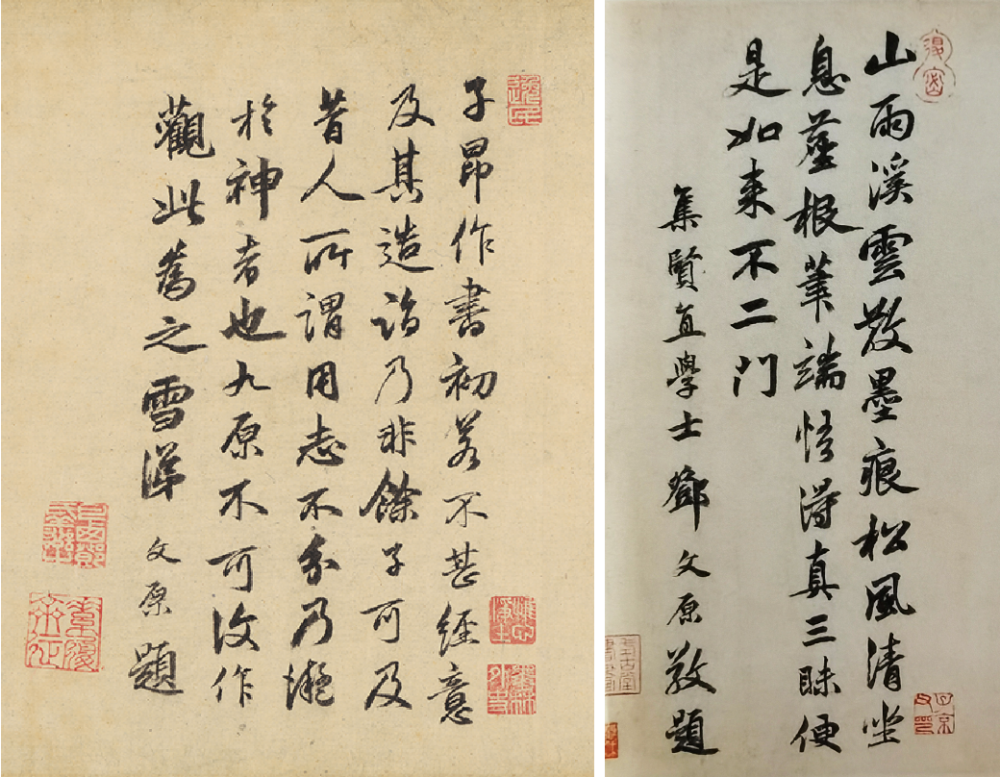 子昂作書初若不甚經意
及其造詣乃非餘子可及
昔人所謂用志不分乃凝
於神者也九原不可復作
觀此爲之雪涕 文原題
山雨溪雲散墨痕松風清坐
息塵根筆端悟得真三昧便
是如來不二門
集賢直學士鄧文原敬題